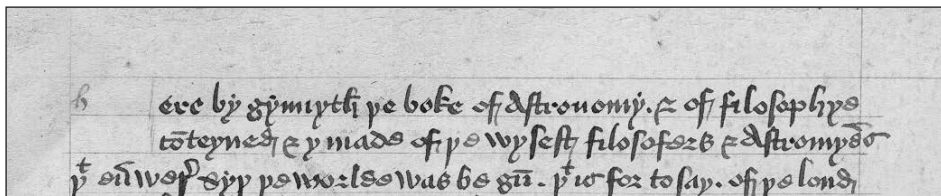 h ere by gynnyth þe boke of Astronomy. & of filosophye
cōteyned & y made of þe wysest filosofers & Astromyēs
þͭ eū wer̛ syþ þe worlde was be gū. þͭ is for to say. of þe lond